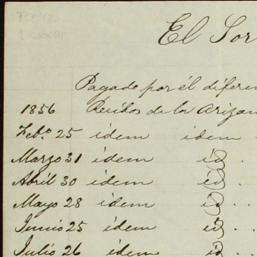 El Sor
Pagado por él diferen
1856 Recibos de la Arizon
Febo. 25 idem idem
Marzo 31 idem id .
Abril 30 idem id . .
Mayo 28 idem id . .
Junio 25 idem id . .
Julio 26 idem id . .